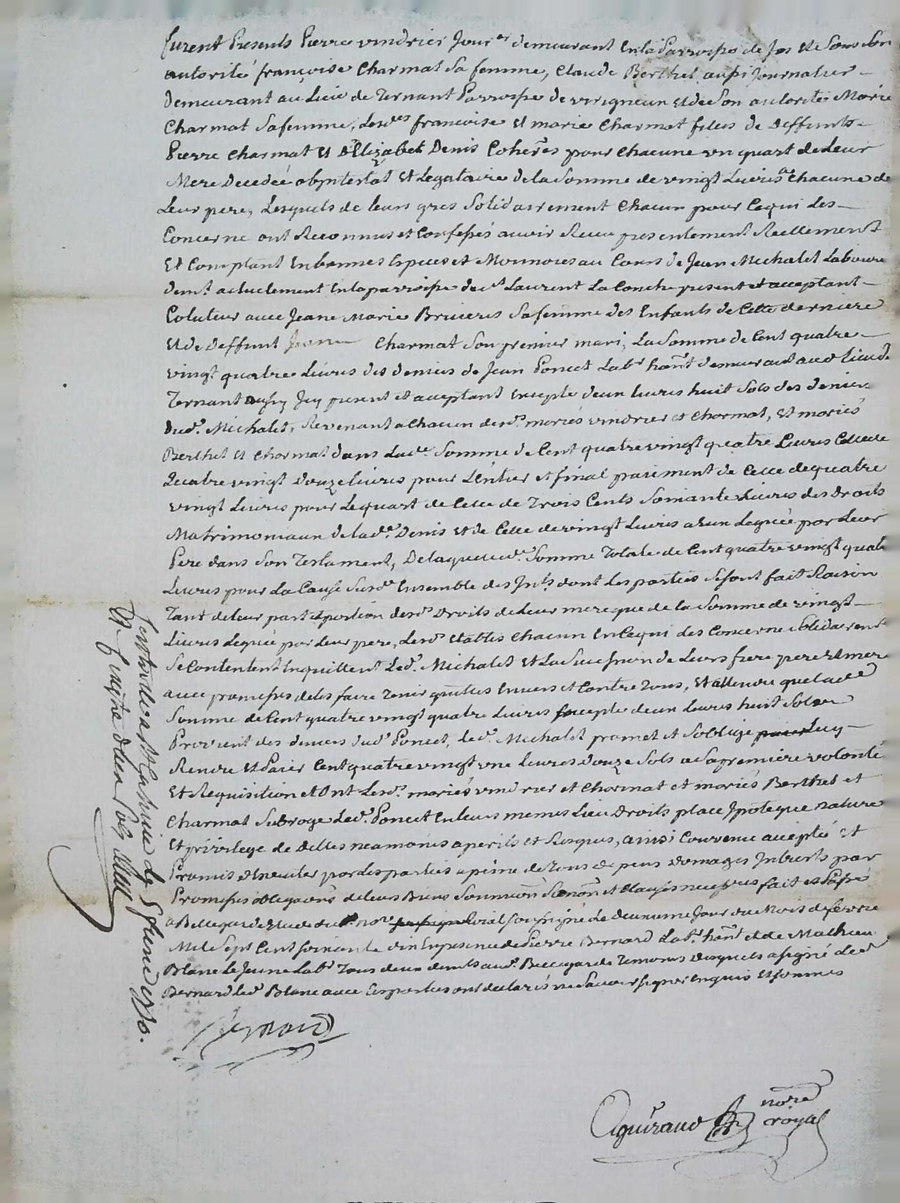 furent Presents Pierre vindrier Jour.er demeurant En la Parroisse de Jas Et de Sous Son
autorité françoise Charmat Sa femme, Claude Berthet aussi Journalier
demeurant au Lieu de Ternant Parroisse de virigneux Et de Son autorité Marie
Charmat Sa femme, Lesd.es françoise Et marie Charmat filles de deffunts
Pierre Charmat Et D'Elizabet Denis Coherres pour Chacune un quart de Leur
Mere Decedée abyntestat Et Legataire de la Somme de vingt Livres Chacune de
Leur pere, Lesquels de Leurs gres Solidairement Chacun pour Ce qui Les
Concerne ont Reconnus et Confessés avoir Receu presentement Reellement
Et Comptant En bonnes Especes et Monnoies au Cours de Jean Michalet Laboure
dem.t actuellement En la parroisse de S.t Laurent La Conche present et acceptant
Cotuteur avec Jeane Marie Bruieris Sa femme des Enfants de Cette derniere
Et de Deffunt Charmat Son premier mari, La Somme de Cent quatre
vingt quatre Livres des deniers de Jean Poncet Lab.r ha.nt demeurant au d Lieu de
Ternant Jcy present et acceptant Excepté deux Livres huit Sols des deniers
dud. Michalet, Revenant a Chacun desd. mariés vindrier et Charmat, Et mariés
Berthet Et Charmat dans Lad.e Somme de Cent quatre vingt quatre Livres Celle de
Quatre vingt Douze Livres pour L'entier Et final paiement de Celle de quatre
vingt Livres pour Le quart de Celle de Trois Cents Soixante Livres des Droits
Matrimoniaux de lad.e Denis Et de Celle de vingt Livres a Eux Leguée par Leur
Pere dans Son Testament, De laquelle d.e Somme Totale de Cent quatre vingt quatre
Livres pour La Cause Susd.e Ensemble des Jnt.s dont Les parties Se sont fait Raison
Tant de Leur part Et portion desd. Droits de Leur mere que de La Somme de vingt
Livres Leguée par Leur pere, Lesd. Etablis Chacun En Ce qui Les Concerne Solidairem.t
Se Contentent En quittent Led. Michalet Et La Succession de Leurs frere pere Et mere
avec promesses de Les faire Tenir quittes Envers et Contre Tous, Et attendu que Lad.e
Somme de Cent quatre vingt quatre Livres Excepté deux Livres huit Sols
Provient des deniers dud. Poncet, Led. Michalet promet et S'oblige Luy
Rendre Et Paier Cent quatre vingt une Livres Douze Sols a Sa premiere volonté
Et Requisition Et Ont Lesd. mariés vindrier et Charmat et mariés Berthet et
Charmat Subrogé Led. Poncet En Leurs memes Lieu Droits place Jpoteque nature
Et privilege de Dettes neanmoins a perils et Risques, ainsi Convenu accepté Et
Promis Executer par Les parties a peine de Tous Depens Domages Jnterets par
Promesses obligaõns de Leurs Biens Soumission Renon Et Clauses necess.res fait et Passé
a Bellegarde Etude du no.re Roial Soussigné Le deuxieme Jour du Mois de fevrier
Mil Sept Cent Soixante dix En presence de Pierre Bernard Lab.r ha.nt et de Mathieu
Blanc Le Jeune Lab.r Tous deux dem.ts aud. Bellegarde Temoins Desquels a Signé Led.
Bernard Led. Blanc avec Les parties ont declarés ne Scavoir Signer Enquis Et Sommés
Bernard
no.re
royal
Le 9 fevrier 1770.